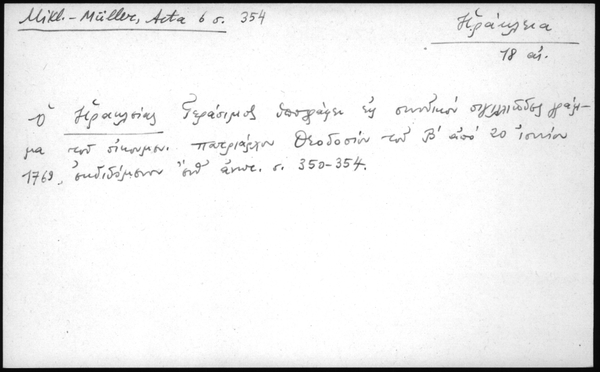 Mikl.-Müller, Acta 6 σ. 354
Ἡράκλεια
18 αἰ.
Ὁ Ἡρακλείας Γεράσιμος ὑπογράφει εἰς συνοδικὸν σιγιλλιῶδες γράμ-
μα τοῦ οἰκουμ. πατριάρχου Θεοδοσίου τοῦ Β' ἀπὸ 20 Ἰουνίου
1769, ἐκδιδόμενον ἔνθ' ἀνωτ. σ. 350-354.